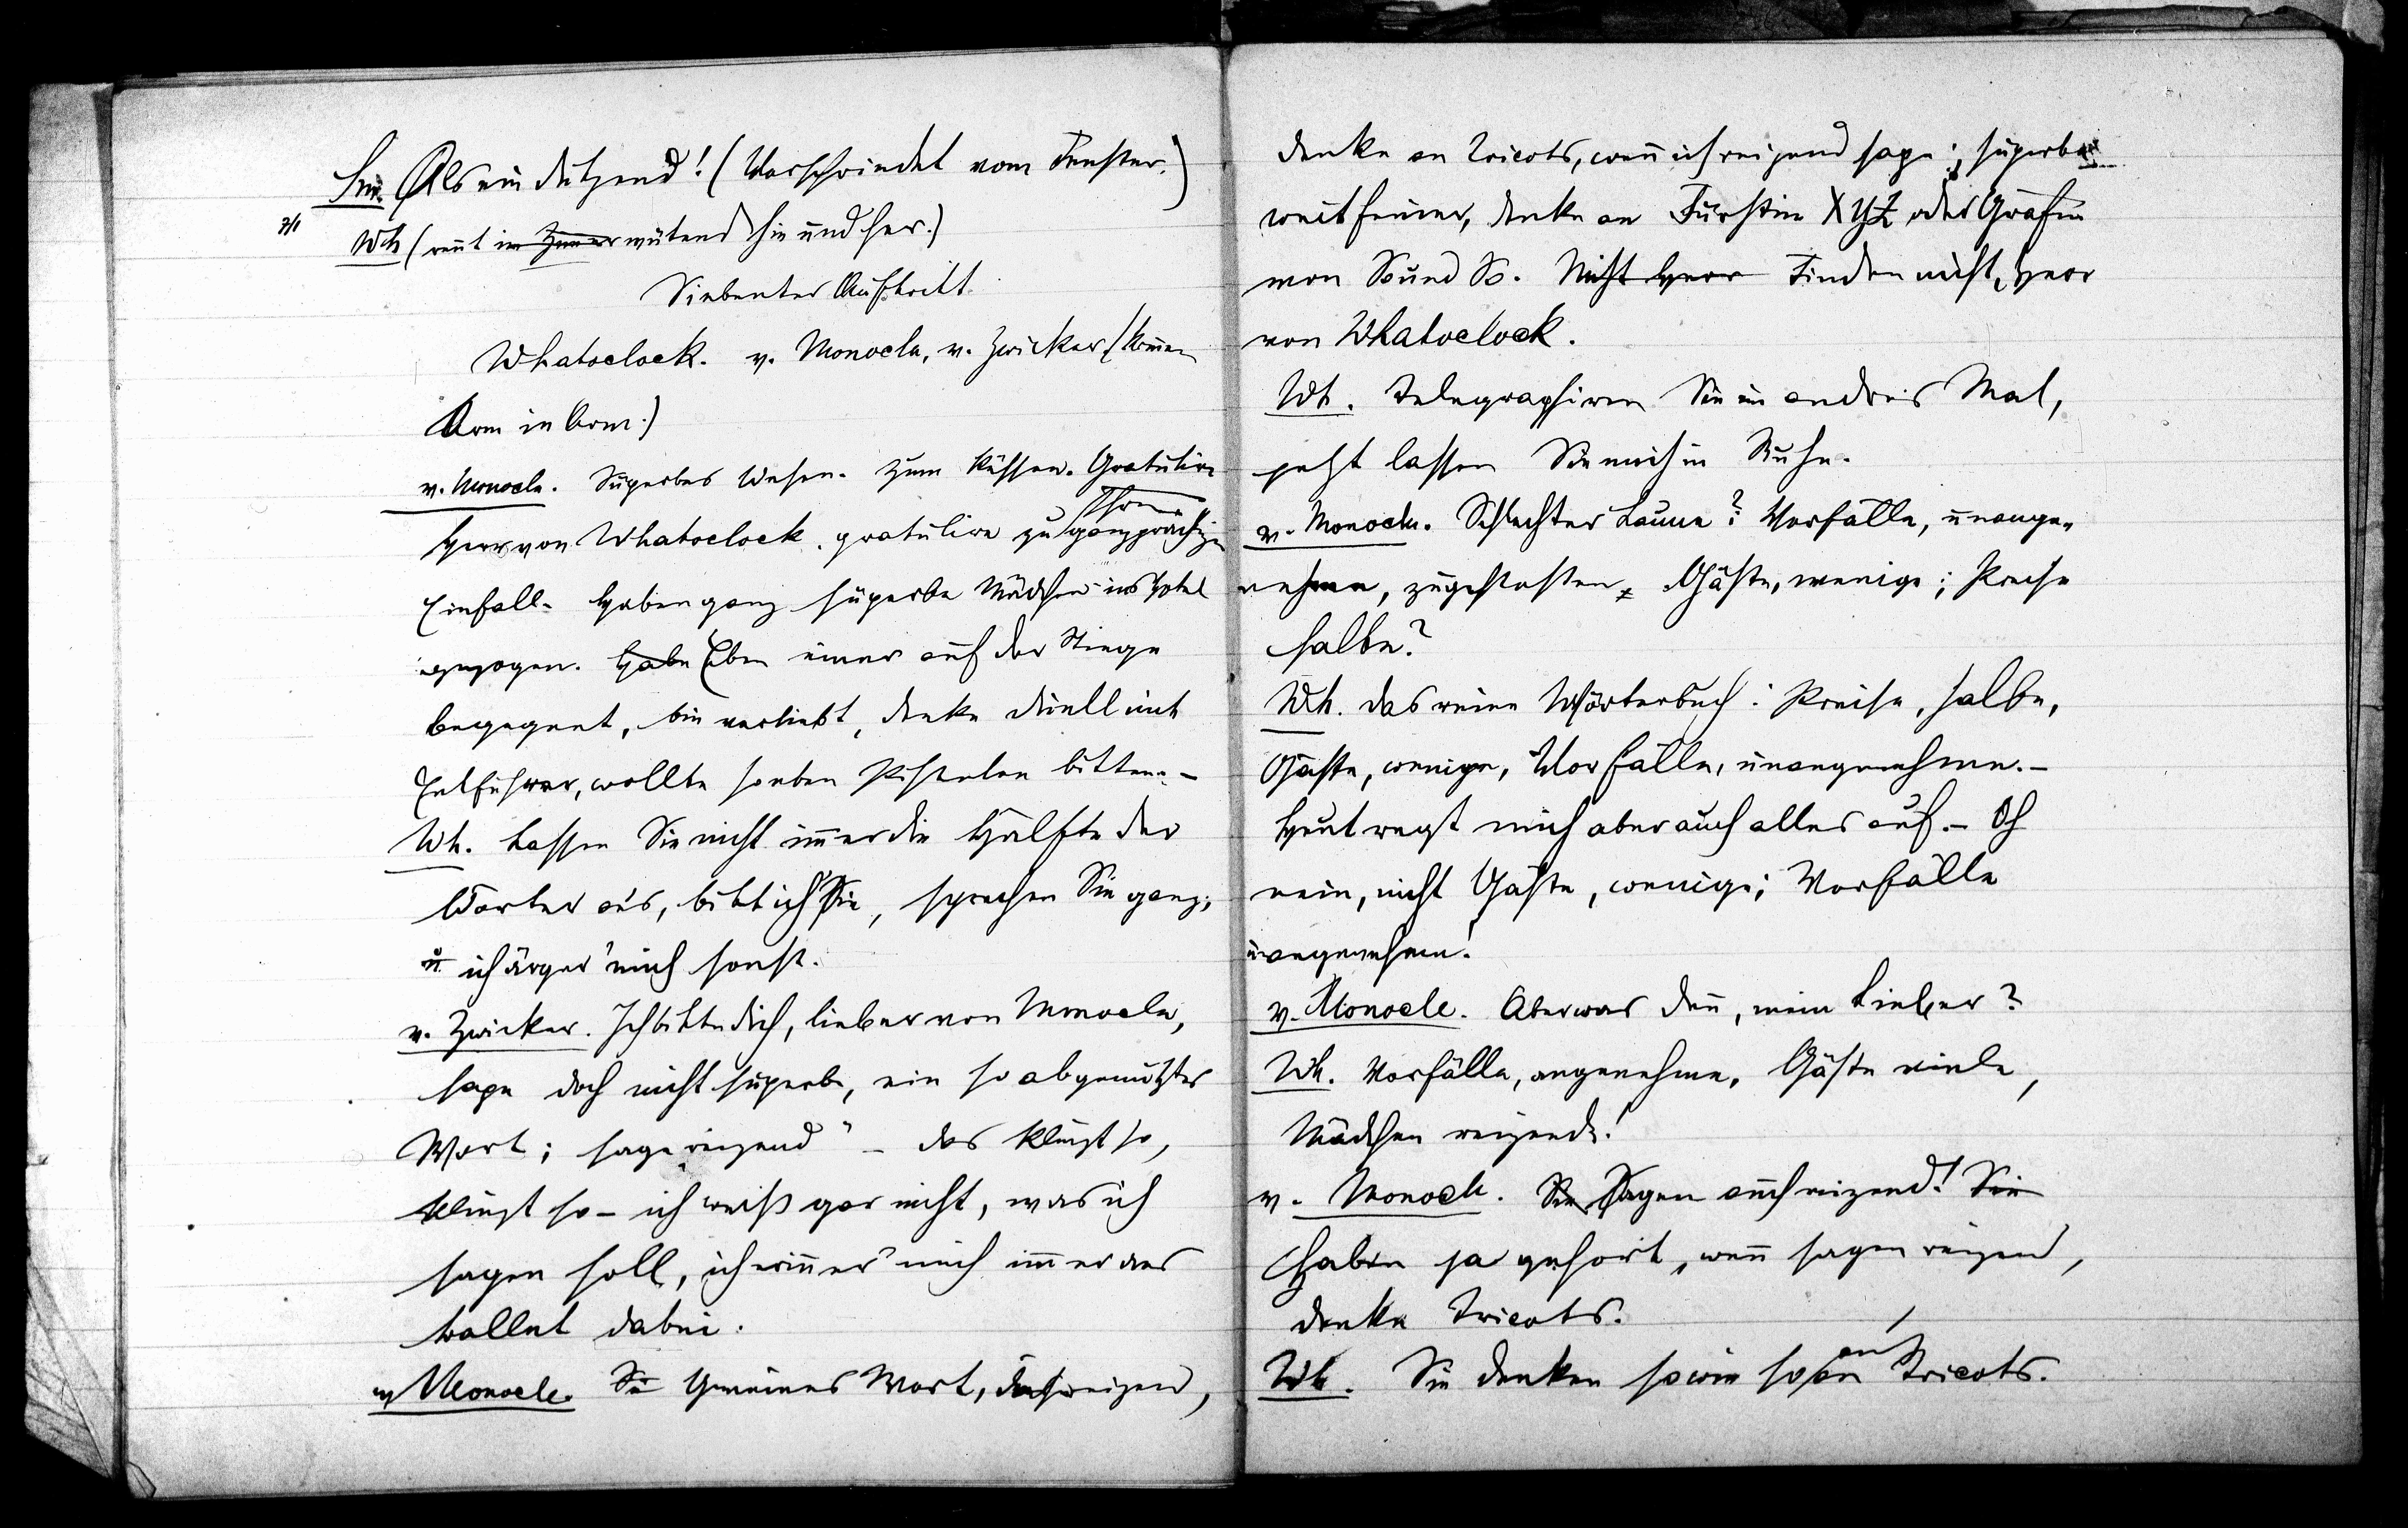 Sie. Als ein dutzend! (Verschwindet vom Fenster.)
Wh (rent im Zimmer wütend hin und her.)
Siebenter Auftritt
Whatoclock. v. Monocle, v. Zwicker (kommen
Arm in Arm.)
v. Monocle. Superbes Wesen. Zum Küssen. Gratulire
Ihrem
Herr von Whatoclock. gratulire zu ganz prächtigen
Einfall. Haben ganz superbe Mädchen ins Hotel
gezogen. Habe Eben einer auf der Stiege
begegnet, bin verliebt, denke duell mit
Entführer, wollte soeben Pistolen bitten. –
Wh. Lassen Sie nicht immer die Hälfte der
Wörter aus, bitt ich Sie, sprechen Sie ganz;
u ich ärger' mich sonst.
v. Zwicker. Ich bitte dich, lieber von Monocle,
sage doch nicht superb, ein so abgenütztes
Wort; sage „reizend" – das klingt so,
klingt so – ich weiß gar nicht, was ich
sagen soll, ich erinner' mich immer ans
ballet dabei.
v Monocle. Sie Gemeines Wort, reizend,
denke an Tricots, wenn ich reizend sage; superb
weit feiner, denke an Fürstin XYZ oder Gräfin
von So und So. Nicht Herr Finden nicht, Herr
von Whatoclock.
Wh. Telegraphiren Sie ein andres Mal,
jetzt lassen Sie mich in Ruhe.
v. Monocle. Schlechter Laune? Vorfälle, unange-
nehme, zugestoßen, Gäste, wenige; Preise
halbe?
Wh. das reine Wörterbuch: Preise, halbe,
Gäste, wenige, Vorfälle, unangenehme. –
Heut regt mich aber auch alles auf. – Oh
nein, nicht Gäste, wenige; Vorfälle
unangenehme!
v. Monocle. Aber was denn, mein Lieber?
Wh. Vorfälle, angenehme, Gäste viele,
Mädchen reizende!
v. Monocle. Sie Sagen auch reizend! Sie
Haben ja gehört, wenn sagen reizend,
denke Tricots.
an
Wh. Sie denken sowie so an Tricots.